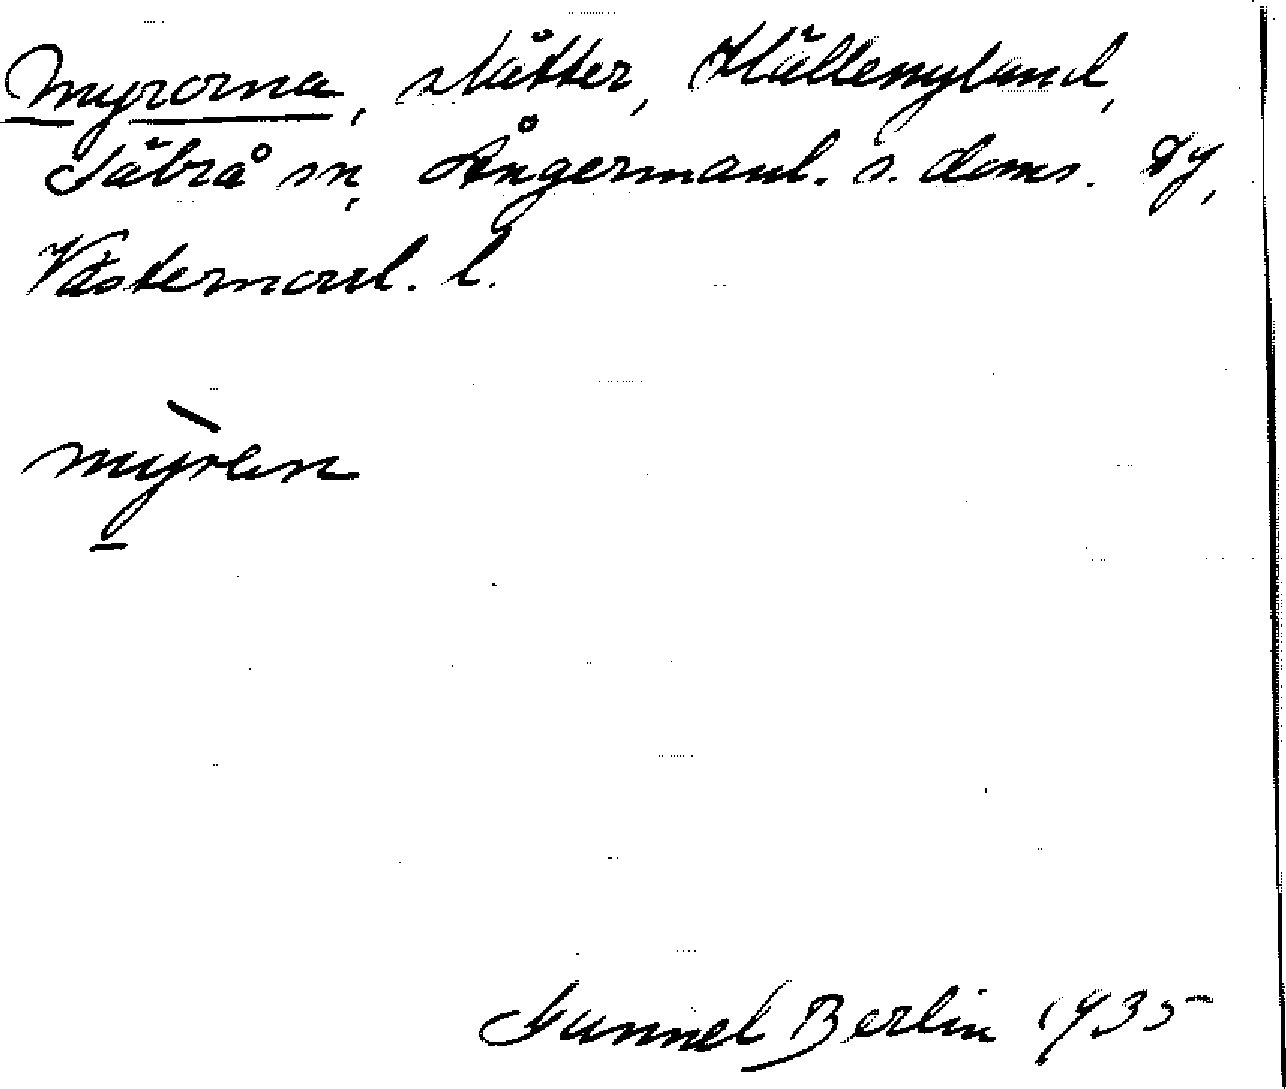 Myrorna, slåtter, Hällenyland,
Säbrå sn, Ångermanl. s. doms. Dy,
Västernorrl. l.
mỳren
Gunnel Berlin 1935